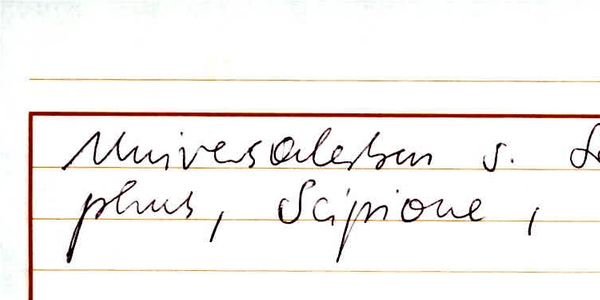 Universalerben s.
phus, Scipione,